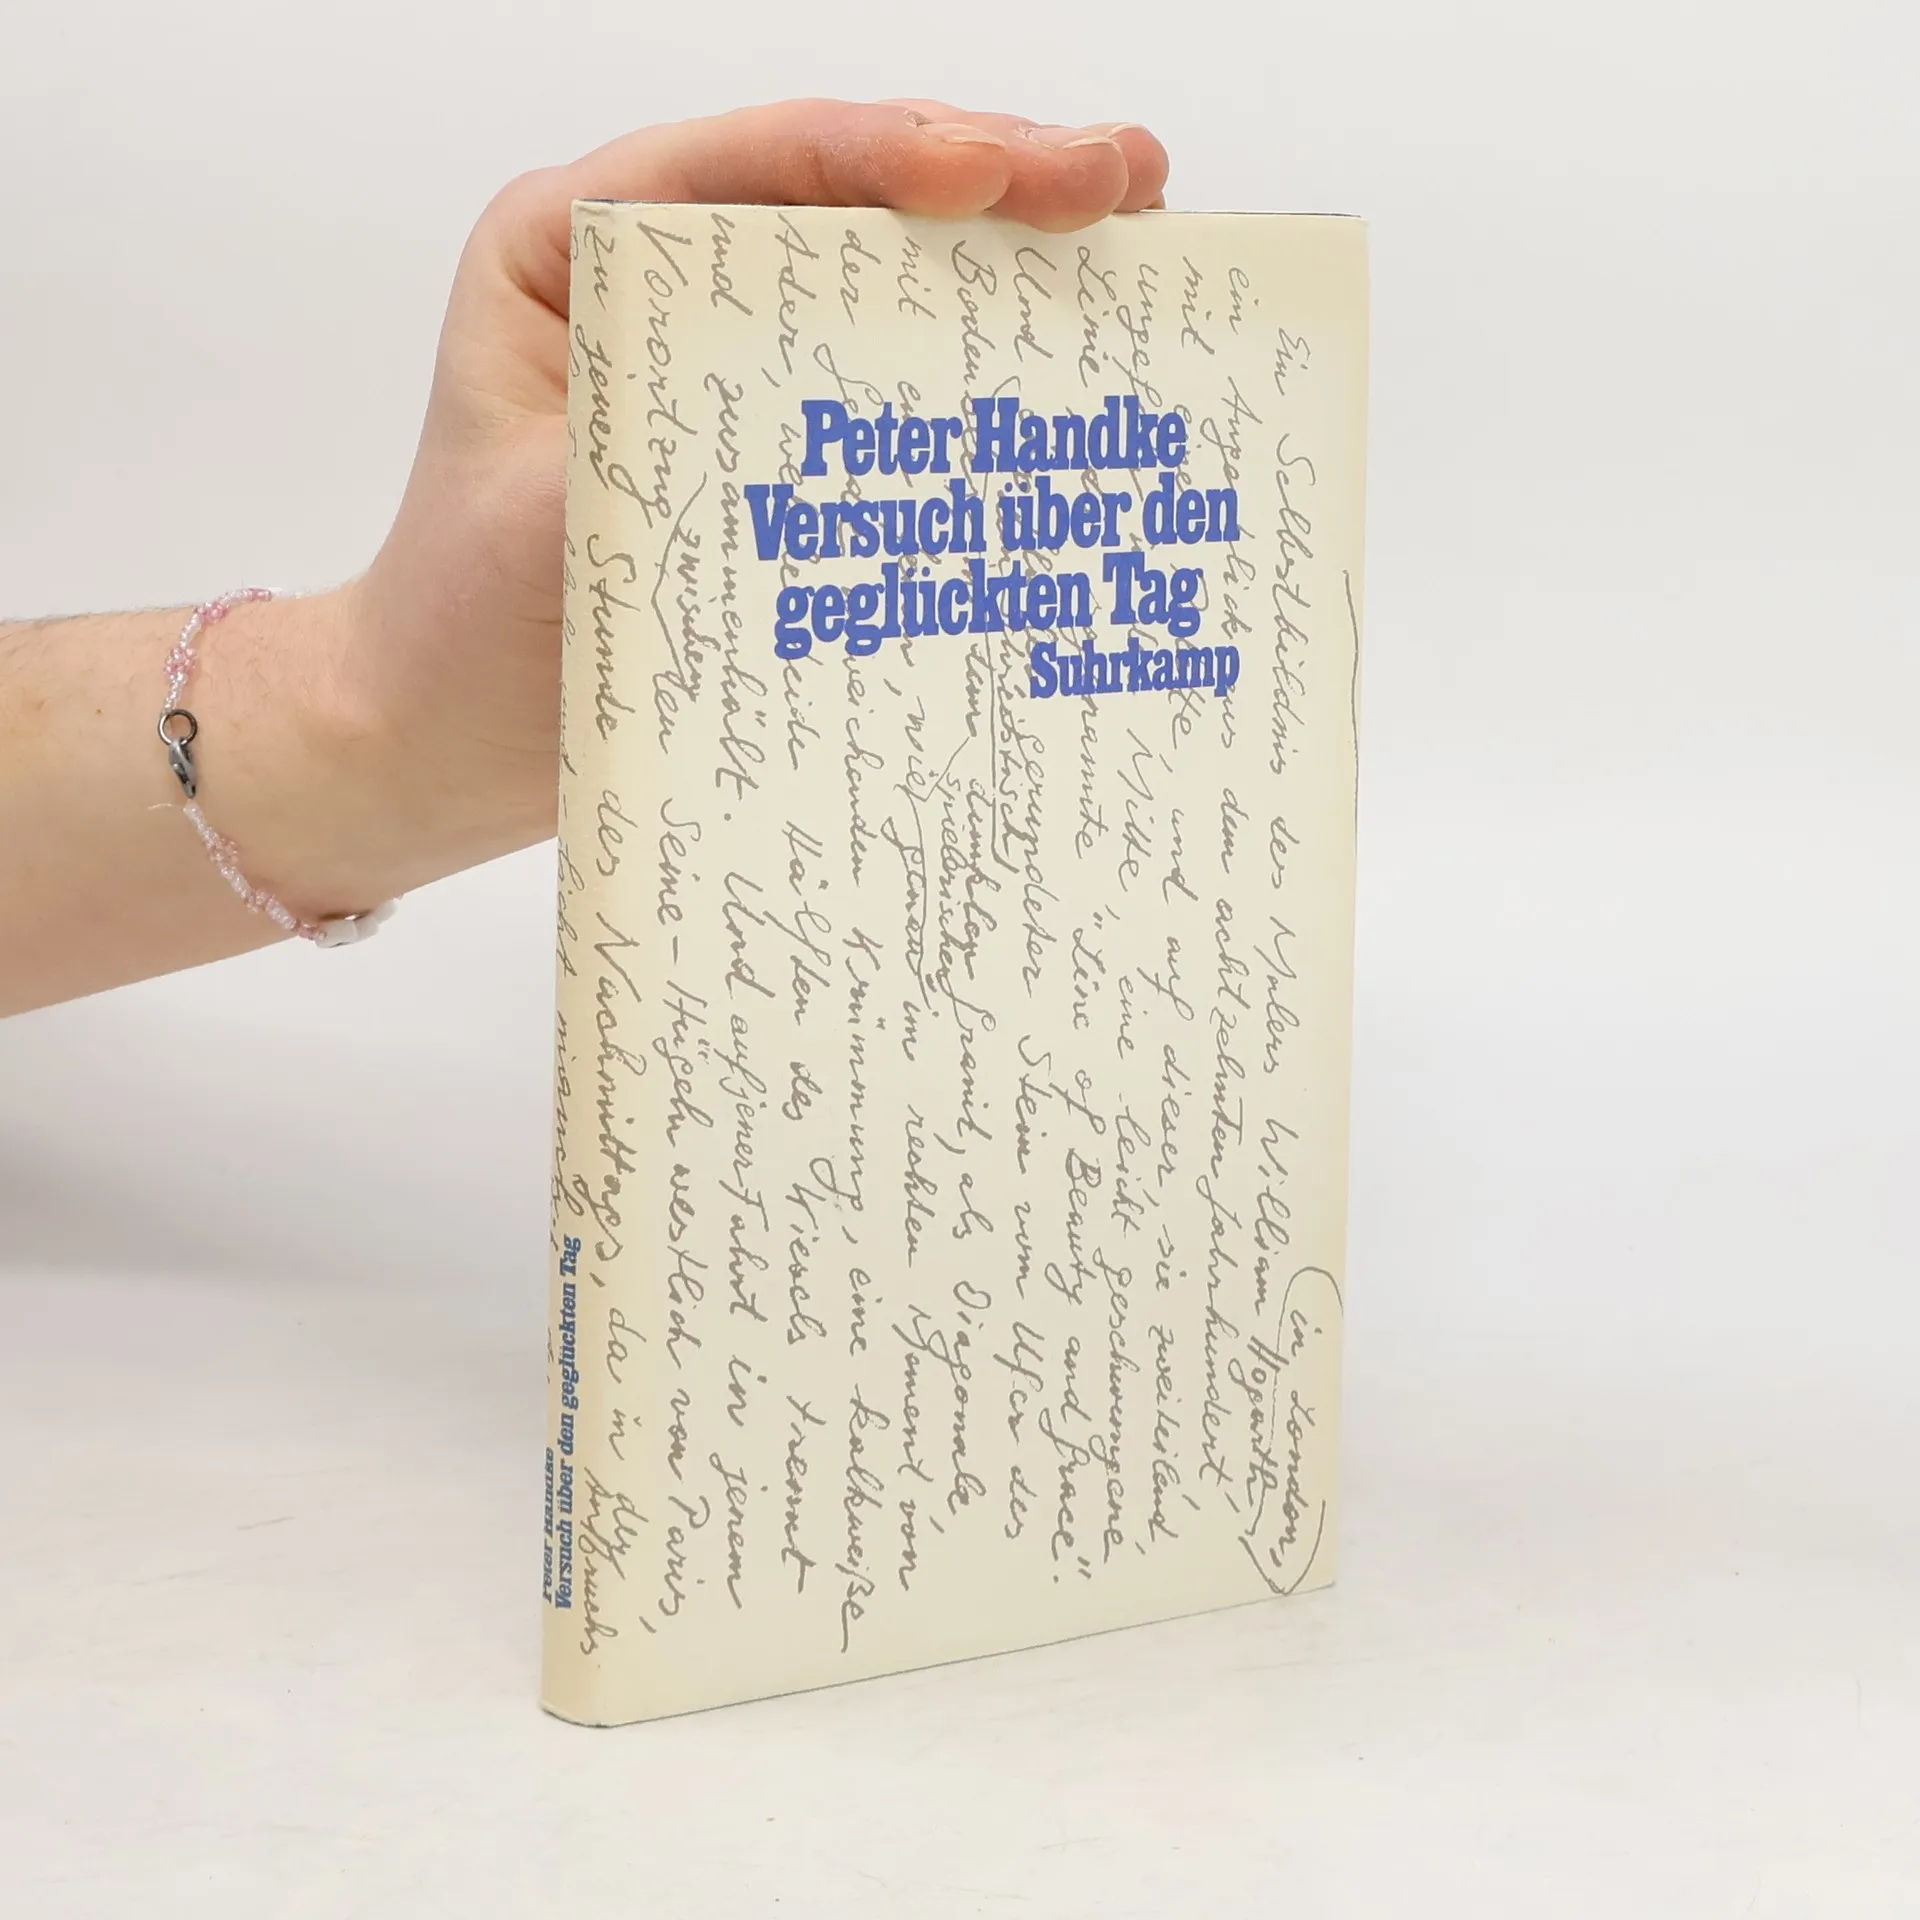 Peter Handke
Versuch über den
geglückten Tag
Suhrkamp
Ein Selbstbildnis des Malers William Hogarth, in London,
ein Augenblick aus dem achtzehnten Jahrhundert,
mit einer Palette, und auf dieser, sie zweiteilend,
ungefähr in der Mitte, eine leicht geschwungene
Linie, die sogenannte "Line of Beauty and Grace".
Und ein flacher gerundeter Stein vom Ufer des
Bodensees, dunklen Granit, als Diagonale,
mit einer spielerischen, wie genau im rechten Moment von
der Geraden weichenden Krümmung, eine kalkweiße
Ader, welche beide Hälften des Kiesels trennt
und zusammenhält. Und auf jener Fahrt in jenem
Vorortzug zwischen den Seine-Hügeln westlich von Paris,
zu jener Stunde des Nachmittags, da in der
Aufbruchs
Peter Handke
Versuch über den geglückten Tag